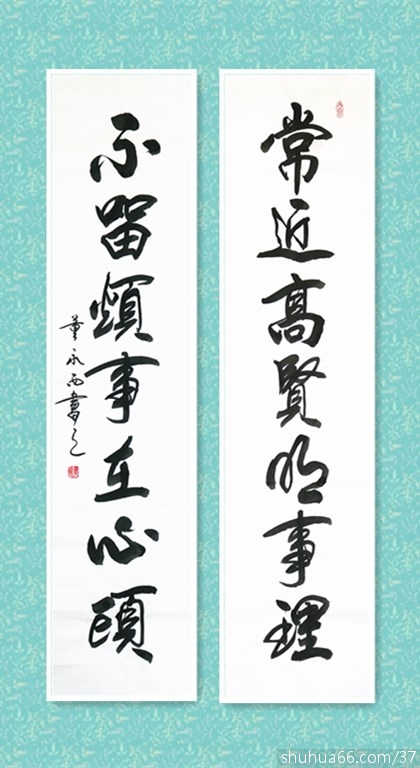 常近高賢明事理
不留煩事在心頭
董永西書之
shuhua66.com/37